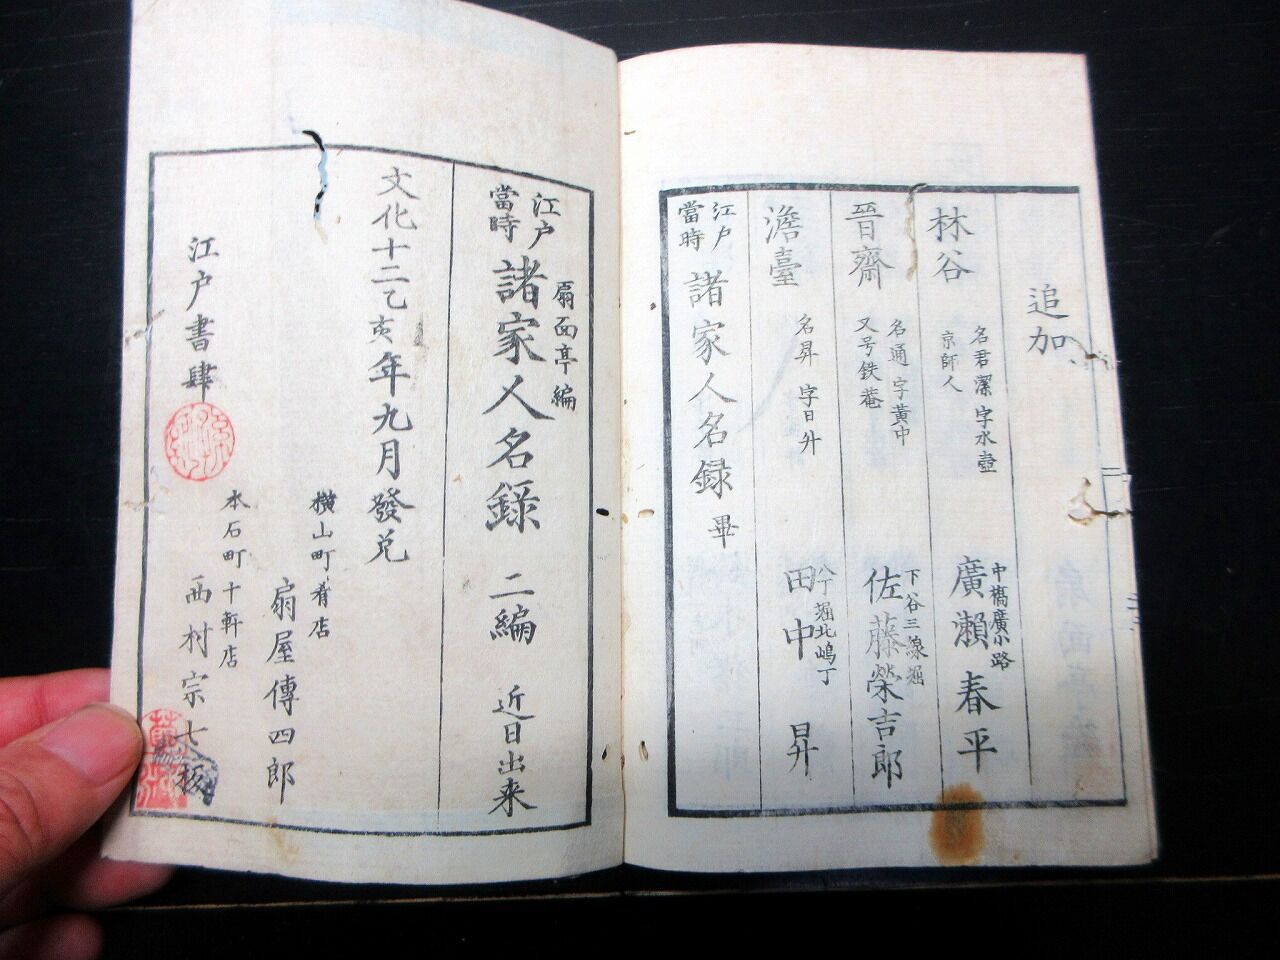 追加
林谷
名君潔 字水壺
京師人
中橋廣小路
廣瀬春平
晉齋
名通 字黄中
又号鉄菴
下谷三線堀
佐藤榮吉郎
澹臺
名昇 字日升
八丁堀北嶋丁
田中昇
江戸
當時
諸家人名録 畢
扇面亭編
江戸
當時
諸家人名錄 二編 近日出来
文化十二乙亥年九月發兌
横山町肴店
扇屋傳四郎
江戸書肆
本石町十軒店
西村宗七板